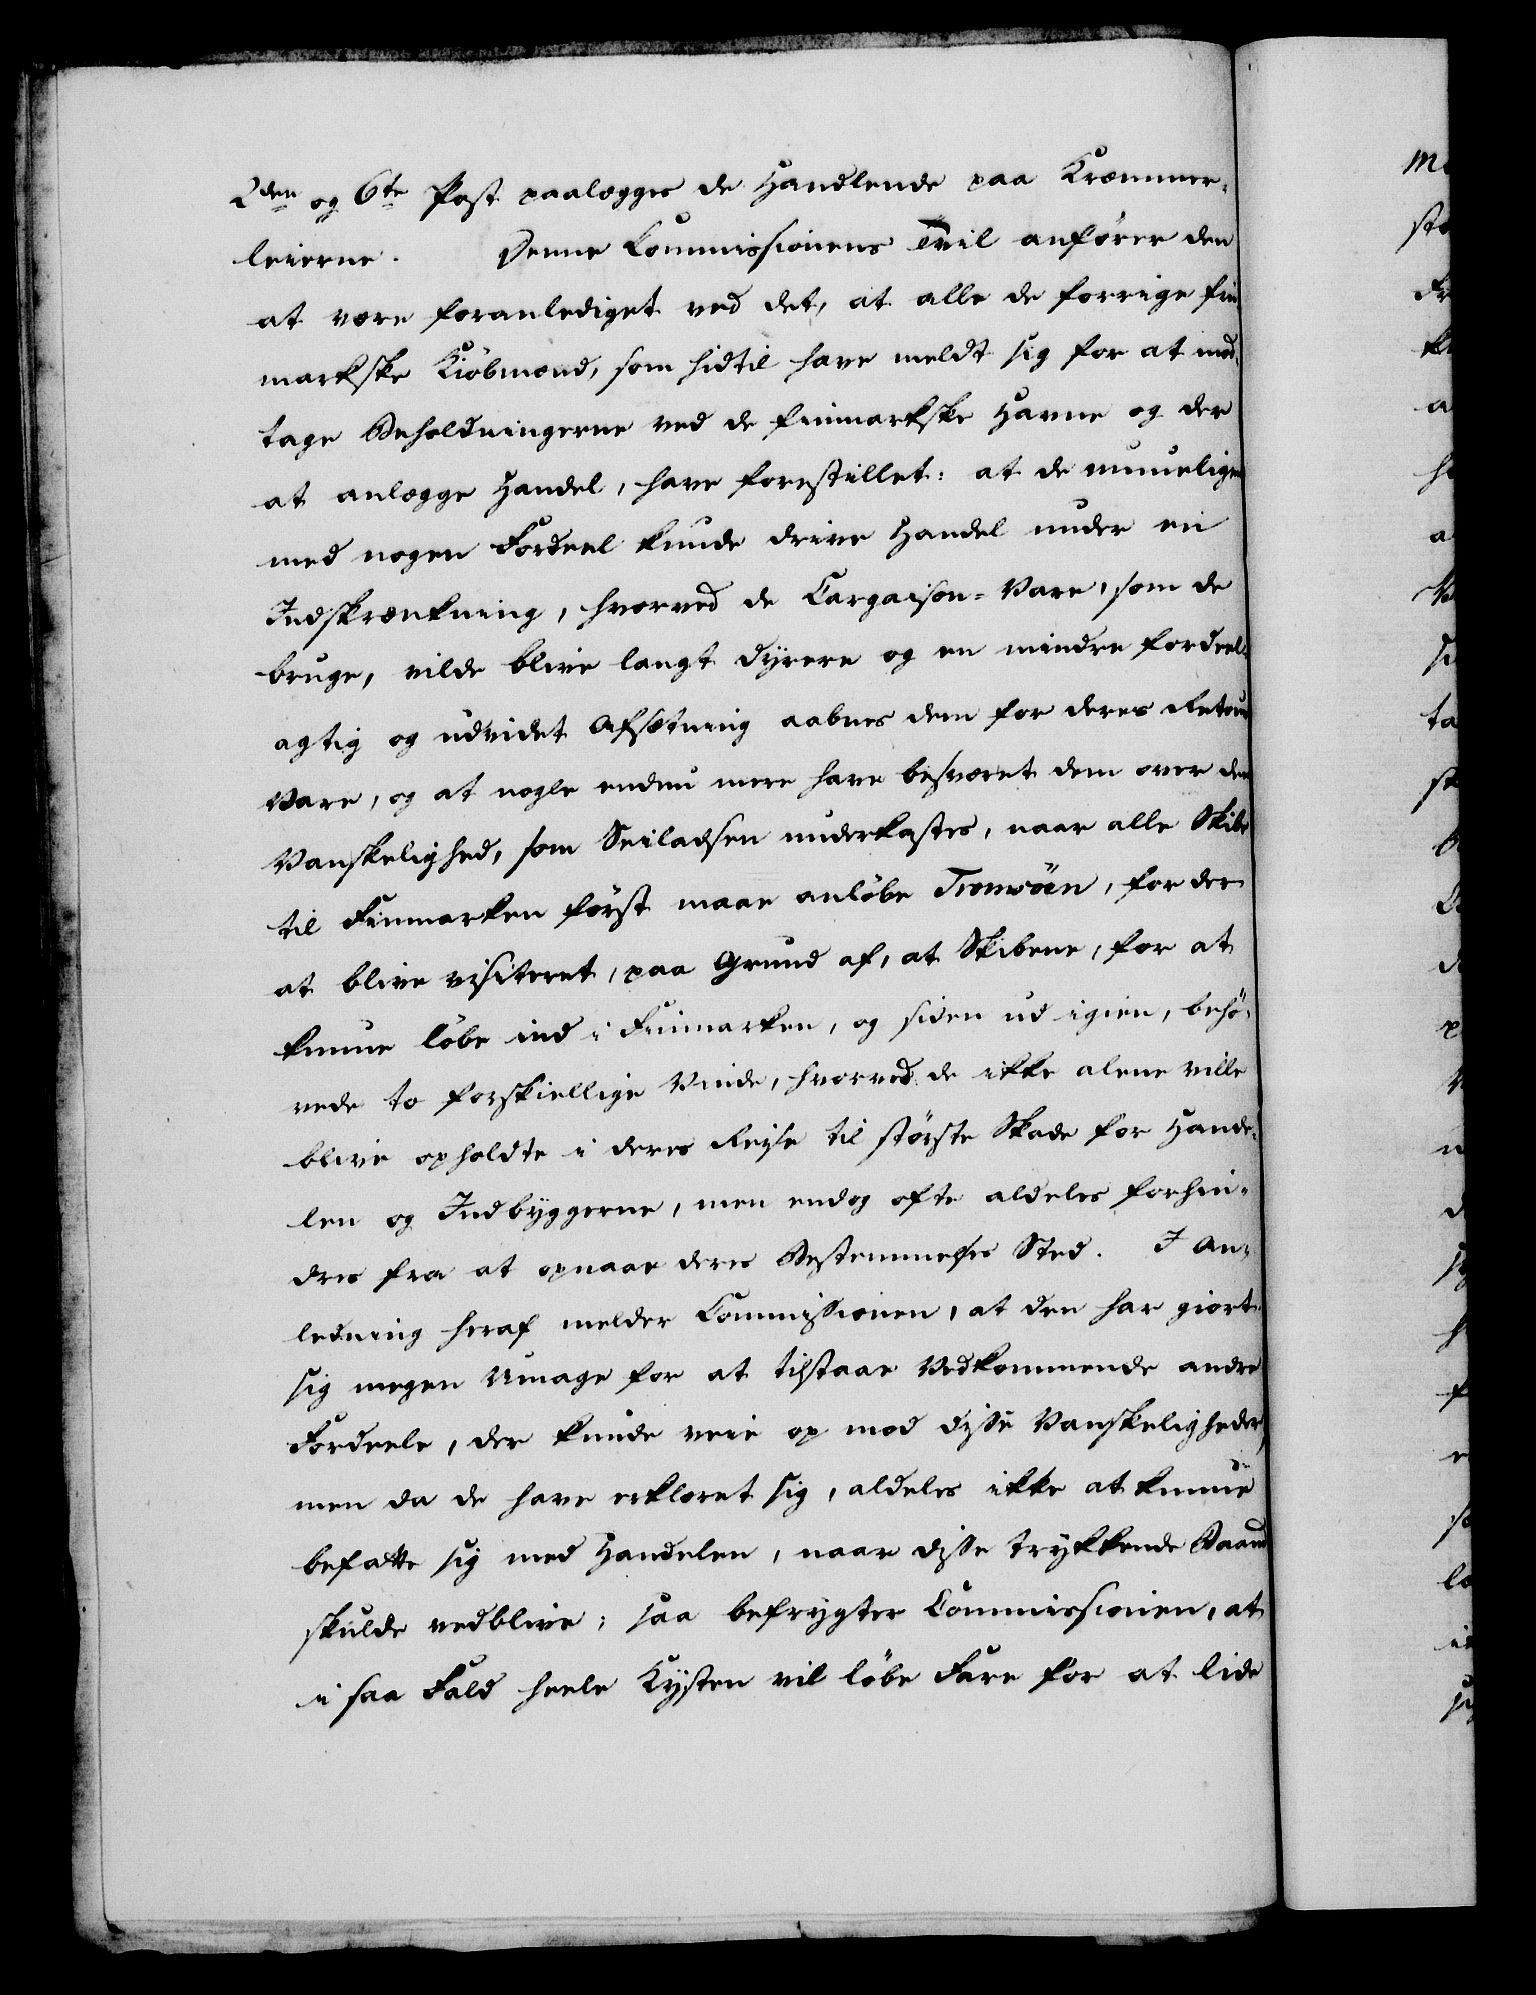 2den og 6te Post paalægges de Handlende paa Kræmmer-
leierne. Denne Commissionens Tvil anfører den
at være foranlediget ved det, at alle de forrige fin-
markske Kiöbmænd, som hidtil have meldt sig for at mod-
tage Beholdningerne ved de finmarkske Havne og der
at anlægge Handel, have forestillet: at de umuelig
med nogen Fordeel kunde drive Handel under en
Indskrænkning, hvorved de Cargaison-Vare, som de
bruge, vilde blive langt dyrere og en mindre fordeel-
agtig og udvidet Afsætning aabnes dem for deres Retour
Vare, og at nogle endnu mere have besværet dem over den
Vanskelighed, som Seiladsen underkastes, naar alle Skibe
til Finmarken först maae anlöbe Tromsöen, for der
at blive visiteret, paa Grund af, at Skibene, for at
kunne löbe ind i Finmarken, og siden ud igien, behö-
vede to forskiellige Vinde, hvorved de ikke alene ville
blive opholdte i deres Reise til störste Skade for Hande-
len og Indbyggerne, men endog ofte aldeles forhin-
dres fra at opnaae deres Bestemmelses Sted. I An-
ledning heraf melder Commissionen, at den har giort
sig megen Umage for at tilstaae Vedkommende andre
Fordeele, der kunde veie op mod disse Vanskeligheder,
men da de have erklæret sig, aldeles ikke at kunne
befatte sig med Handelen, naar disse trykkende Baand
skulde vedblive; saa befrygter Commissionen, at
i saa Fald heele Kysten vil löbe Fare for at lide